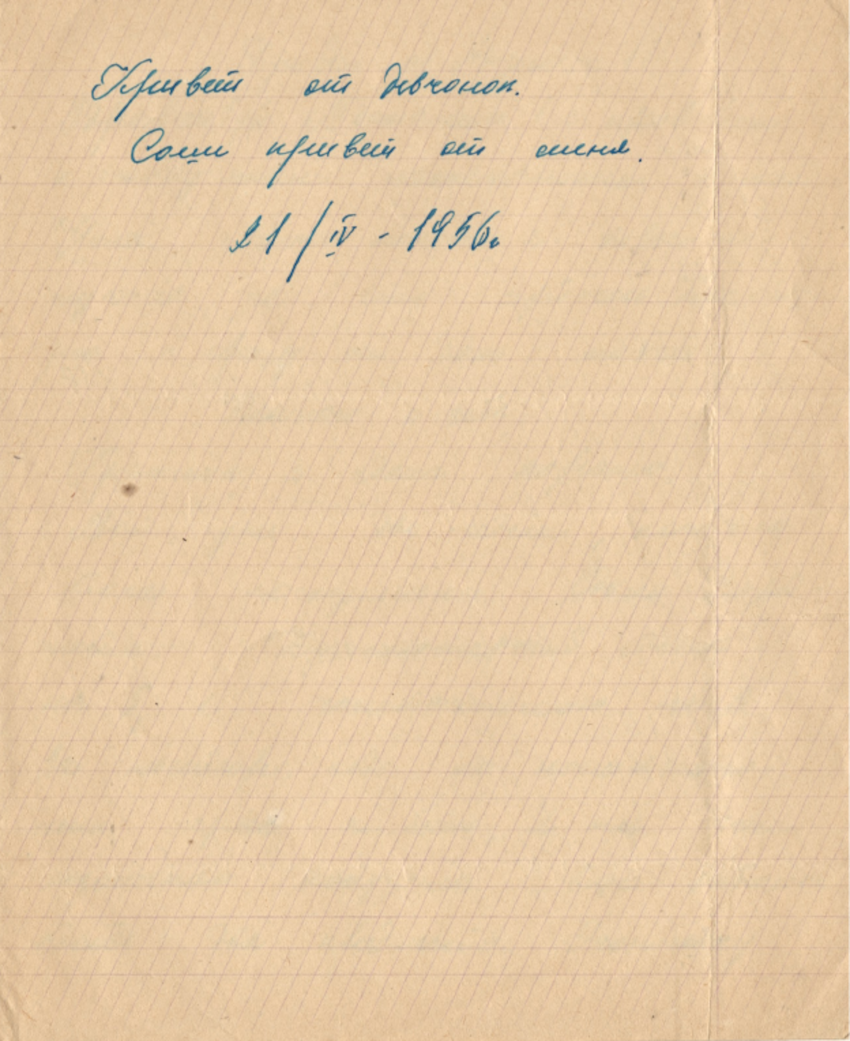 Привет от девчонок.
Соши привет от меня.
21/IV - 1956г